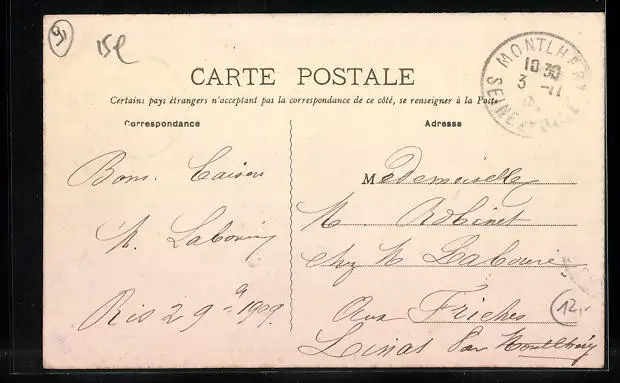 CARTE POSTALE
Certains pays étrangers n'acceptant pas la correspondance de ce côté, se renseigner à la Poste
Correspondance
Adresse
Bons Baisers
Mademoiselle
M Robinet
chez M Labouré
Ris 2 9 1909
Aux Friches
Linas par Montlhéry
MONTLHÉRY
10 30
3 -11
SEINE ET OISE
12,-